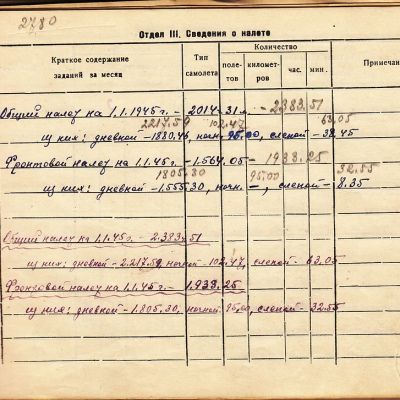 2780
Отдел III. Сведения о налете
Краткое содержание заданий за месяц
Тип самолета
Количество
полетов
километров
час.
мин.
Примечан
Общий налет на 1.1.1945г. – 2014-31м. – 2383.51
2217.59 102.47 63.05
из них: дневной – 1880.46, ночн. 95.00, слепой – 38.45
Фронтовой налет на 1.1.45г. – 1.564.05 – 1933.25
1805.30 95.00 32.55
из них: дневной – 1.555.30, ночн. – , слепой – 8.35
Общий налет на 1.1.45г. – 2.383.51
из них: дневной – 2.217.59, ночной – 102.47, слепой – 63.05
Фронтовой налет на 1.1.45г. – 1.933.25
из них: дневной – 1.805.30, ночной 95.00, слепой – 32.55